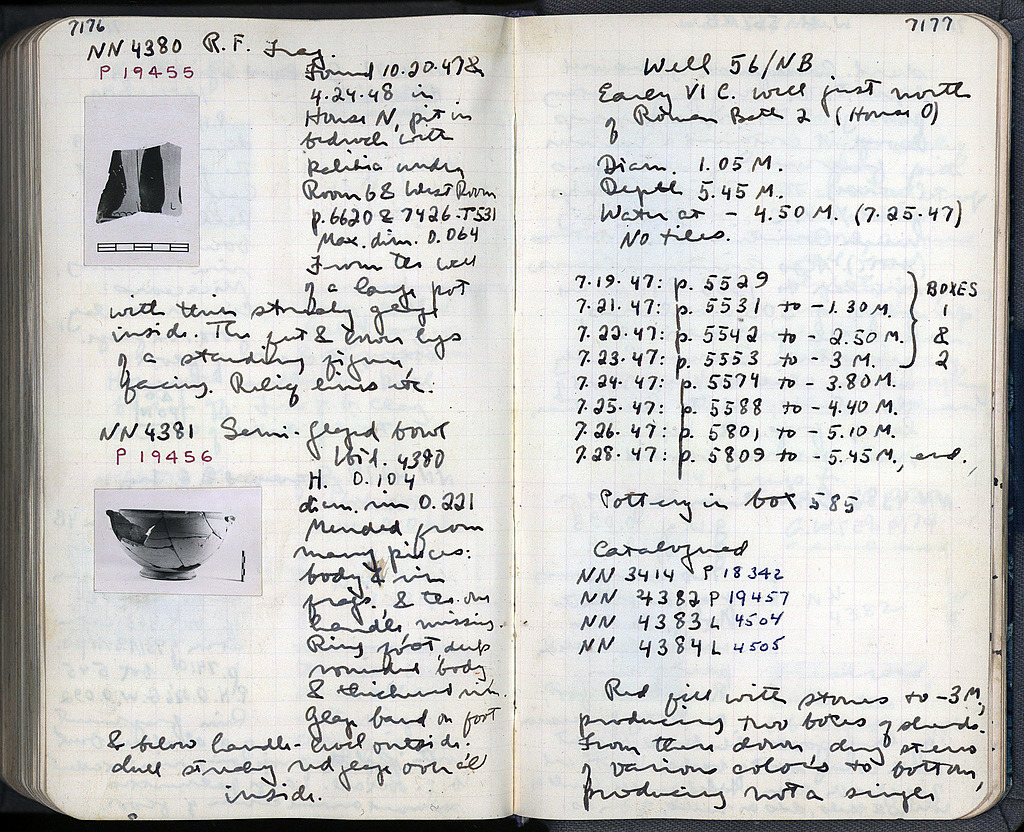 7176
NN 4380 R. F. Frag.
P 19455
Found 10.20.47 &
4.24.48 in
House N, pit in
bedrock with
Pelikia under
Room 6 & West Room
p. 6620 & 7426 - T531
Max. dim. 0.064
From the wall
of a large pot
with thin streaky glaze
inside. The feet & lower legs
of a standing figure,
facing. Relief lines etc.
NN 4381 Semi-glazed bowl
P 19456
Ibid. 4380
H. 0.104
diam. rim 0.221
Mended from
many pieces:
body & rim
frags. & the one
handle missing.
Ring foot deep
rounded body
& thickened rim.
Glaze band on foot
& below handle-level outside.
dull streaky red glaze over all
inside.
7177
Well 56/NB
Early VI C. well just north
of Roman Bath 2 (House O)
Diam. 1.05 M.
Depth 5.45 M.
Water at - 4.50 M. (7.25.47)
No tiles.
7.19.47: p. 5529
7.21.47: p. 5531 to - 1.30 M.
7.22.47: p. 5542 to - 2.50 M.
7.23.47: p. 5553 to - 3 M.
BOXES
1
&
2
7.24.47: p. 5574 to - 3.80 M.
7.25.47: p. 5588 to - 4.40 M.
7.26.47: p. 5801 to - 5.10 M.
7.28.47: p. 5809 to - 5.45 M., end.
Pottery in box 585
Catalogued
NN 3414 P 18342
NN 4382 P 19457
NN 4383 L 4504
NN 4384 L 4505
Red fill with stones to -3 M,
producing two boxes of sherds.
From there down, dug stereo
of various colors to bottom,
producing not a single